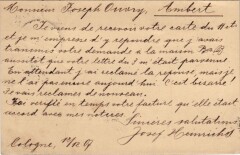 Monsieur Joseph Ouvry, Ambert
Je viens de recevoir votre carte du
et je m'empresse d'y répondre que j'avais
transmis votre demande à la maison
aussitôt que votre lettre du 3 m'était parvenue
En attendant j'ai réclamé la réponse, mais je
ne l'ai pas encore aujourd'hui. C'est bizarre!
Je vais réclamer de nouveau.
J'ai vérifié en temps votre facture qu'elle était
accord avec mes notices.
Sincères salutations
Josef Heinrichs
Cologne,